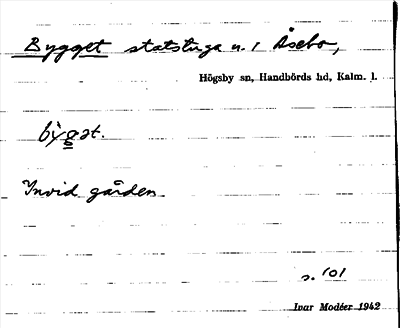 Bygget statstuga n. 1 Åsebo,
Högsby sn, Handbörds hd, Kalm. l.
býgət.
Invid gården
s. 101
Ivar Modéer 1942